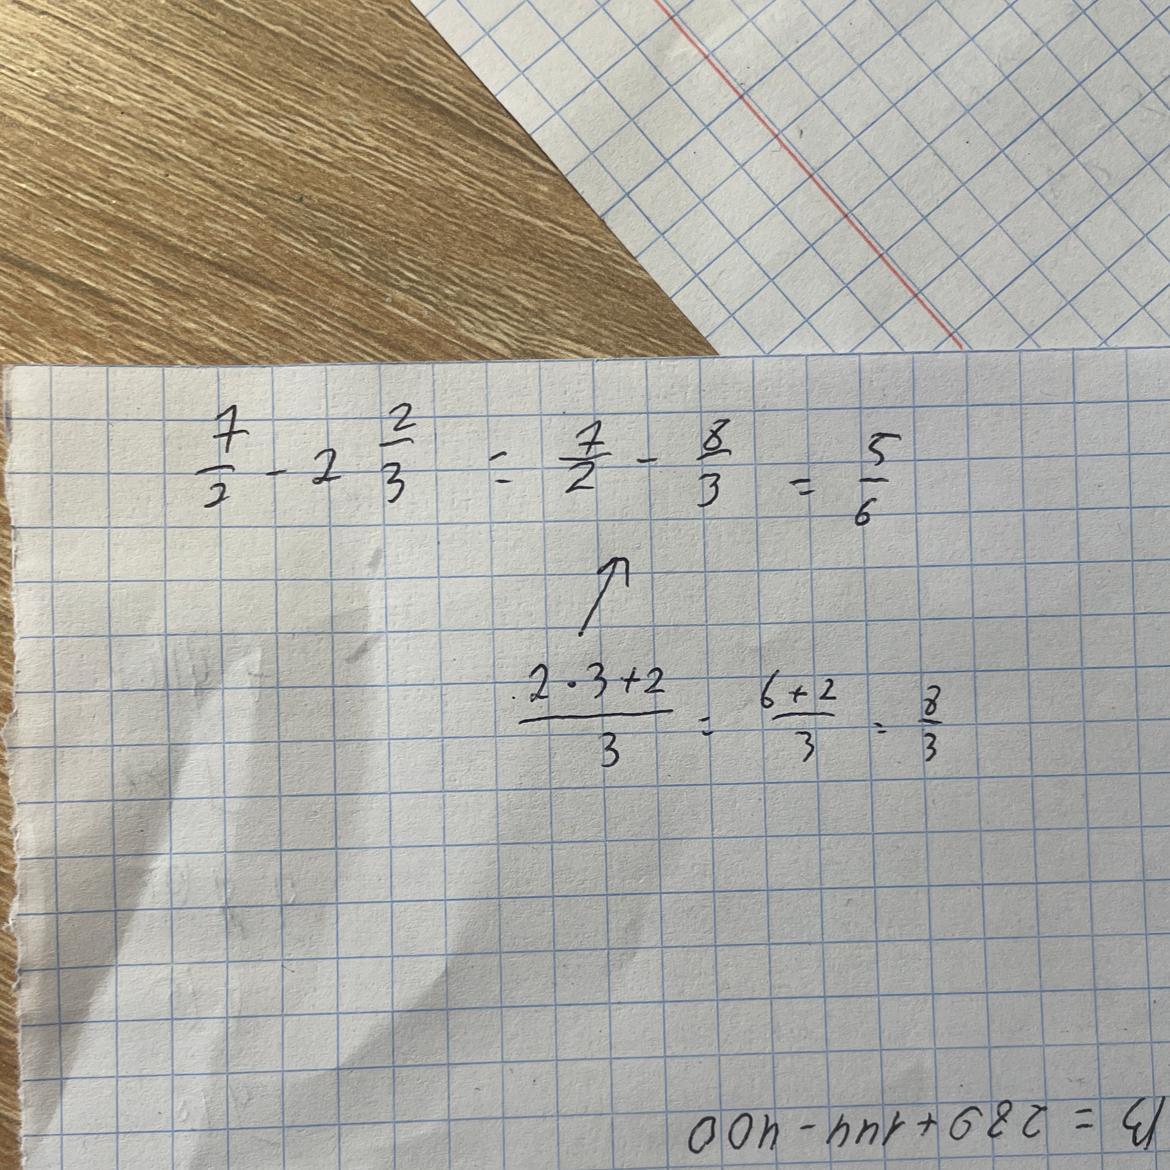 7/2 - 2 2/3 = 7/2 - 8/3 = 5/6
2·3+2/3 = 6+2/3 = 8/3
13 = 289+144-400